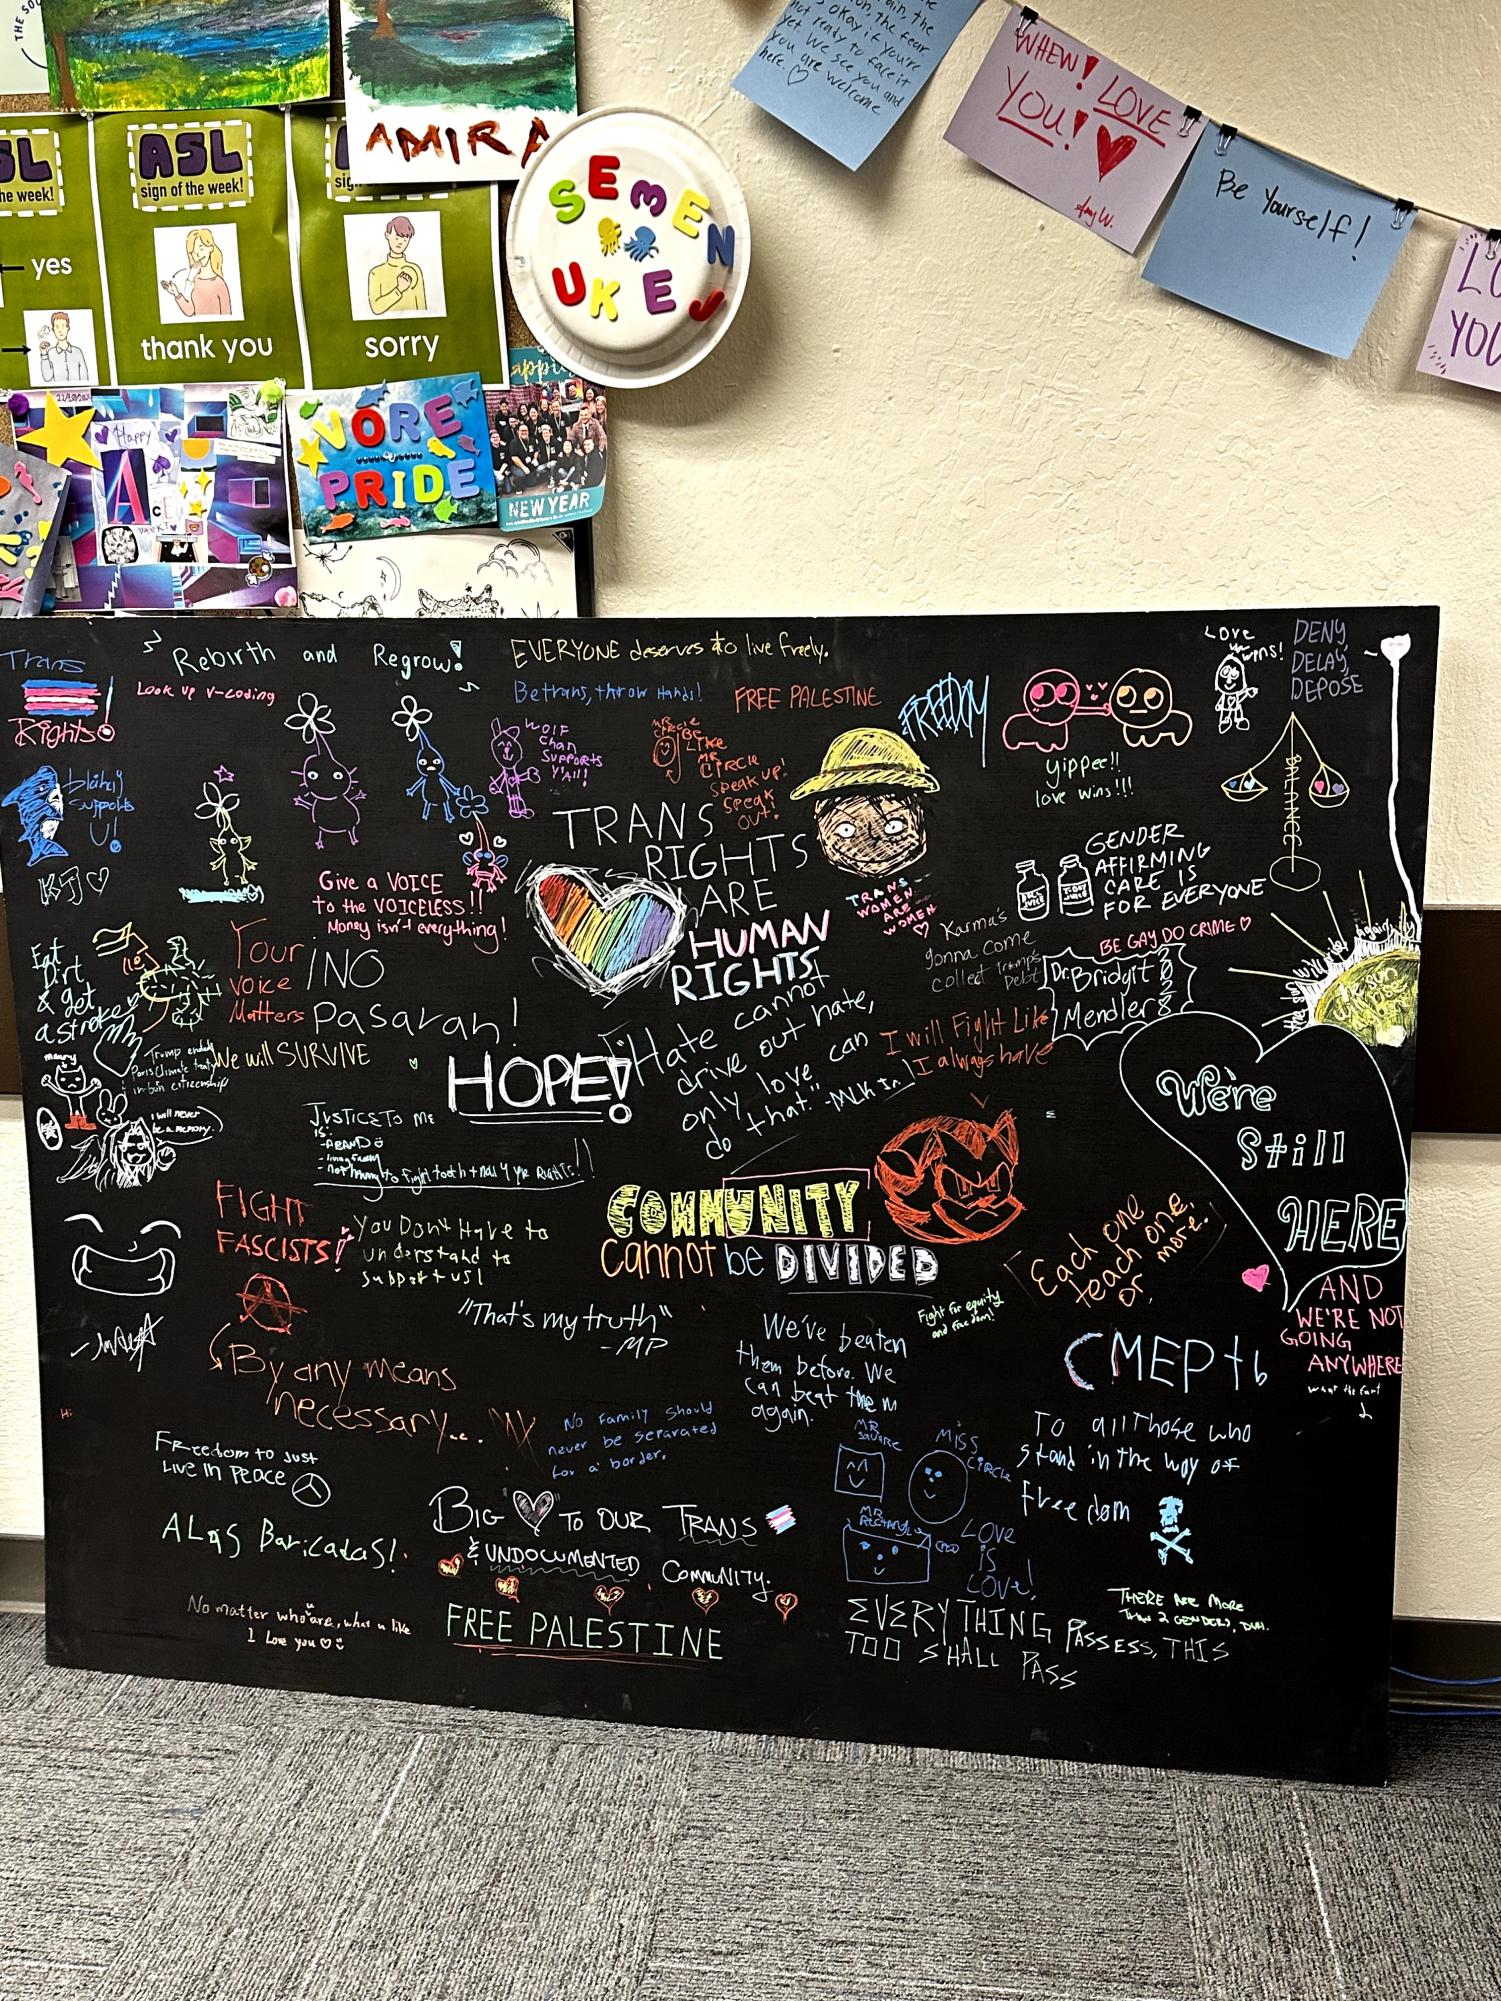 THE SOU
AMIRA
ASL
sign of the week!
yes
thank you
sorry
SEMEN
UKE J
n, the fear
okay if you're
not ready to face it
yet. We see you and
you are welcome
here. ♡
WHEW! LOVE
YOU! ♥
Amy W.
Be Yourself!
YOU
Happy
A
CE
VORE
PRIDE
NEW YEAR
Trans
Rights
Rebirth and Regrow!
Look up V-coding
EVERYONE deserves to live freely.
Be trans, throw Hands!
FREE PALESTINE
FREEDOM
Love
wins!
DENY,
DELAY,
DEPOSE
blåhaj
supports
U!
KJ ♡
WOLF
Chan
SUPPORTS
Y'ALL!
MR
CIRCLE
BE
LIKE
MR
CIRCLE
SPEAK UP!
SPEAK
OUT!
Yippee!!
love wins!!!
BALANCE
TRANS
RIGHTS
ARE
HUMAN
RIGHTS
TRANS
WOMEN
ARE
WOMEN
♡
GENDER
AFFIRMING
CARE IS
FOR EVERYONE
BE GAY DO CRIME ♡
Give a VOICE
to the VOICELESS!!
Money isn't everything!
Karma's
gonna come
collect Trumps
Debt
Dr. Bridgit
Mendler
Eat
Dirt
& get
a stroke
Your
voice
Matters
¡NO
Pasaran!
Trump ended
Paris Climate treaty
in-born citizenship
We will SURVIVE
HOPE!
"Hate cannot
drive out hate,
only love can
do that." -MLK Jr.
I will Fight Like
I always have
I will never
be a memory.
JUSTICE TO ME
IS:
- living freely
- not having to fight tooth + nail 4 yr RIGHTS!!
We're
Still
HERE
AND
WE'RE NOT
GOING
ANYWHERE
FIGHT
FASCISTS!
You Don't Have to
understand to
support us!
COMMUNITY
cannot be DIVIDED
Each one
teach one,
or,
more.
"That's my truth"
-MP
Fight for equity
and freedom!
By any means
necessary...
We've beaten
them before. We
can beat them
again.
Hi
No Family should
never be separated
for a border.
MR
SQUARE
MISS
CIRCLE
MR
RECTANGLE
LOVE
IS
LOVE!
To all those who
stand in the way of
freedom
Freedom to just
Live in Peace
ALas Baricadas!
BIG ♥ TO OUR TRANS
& UNDOCUMENTED COMMUNITY.
No matter who u are, what u like
I love you ♡
FREE PALESTINE
EVERYTHING PASSESS, THIS
TOO SHALL PASS
THERE ARE MORE
THAN 2 GENDERS, DUH.